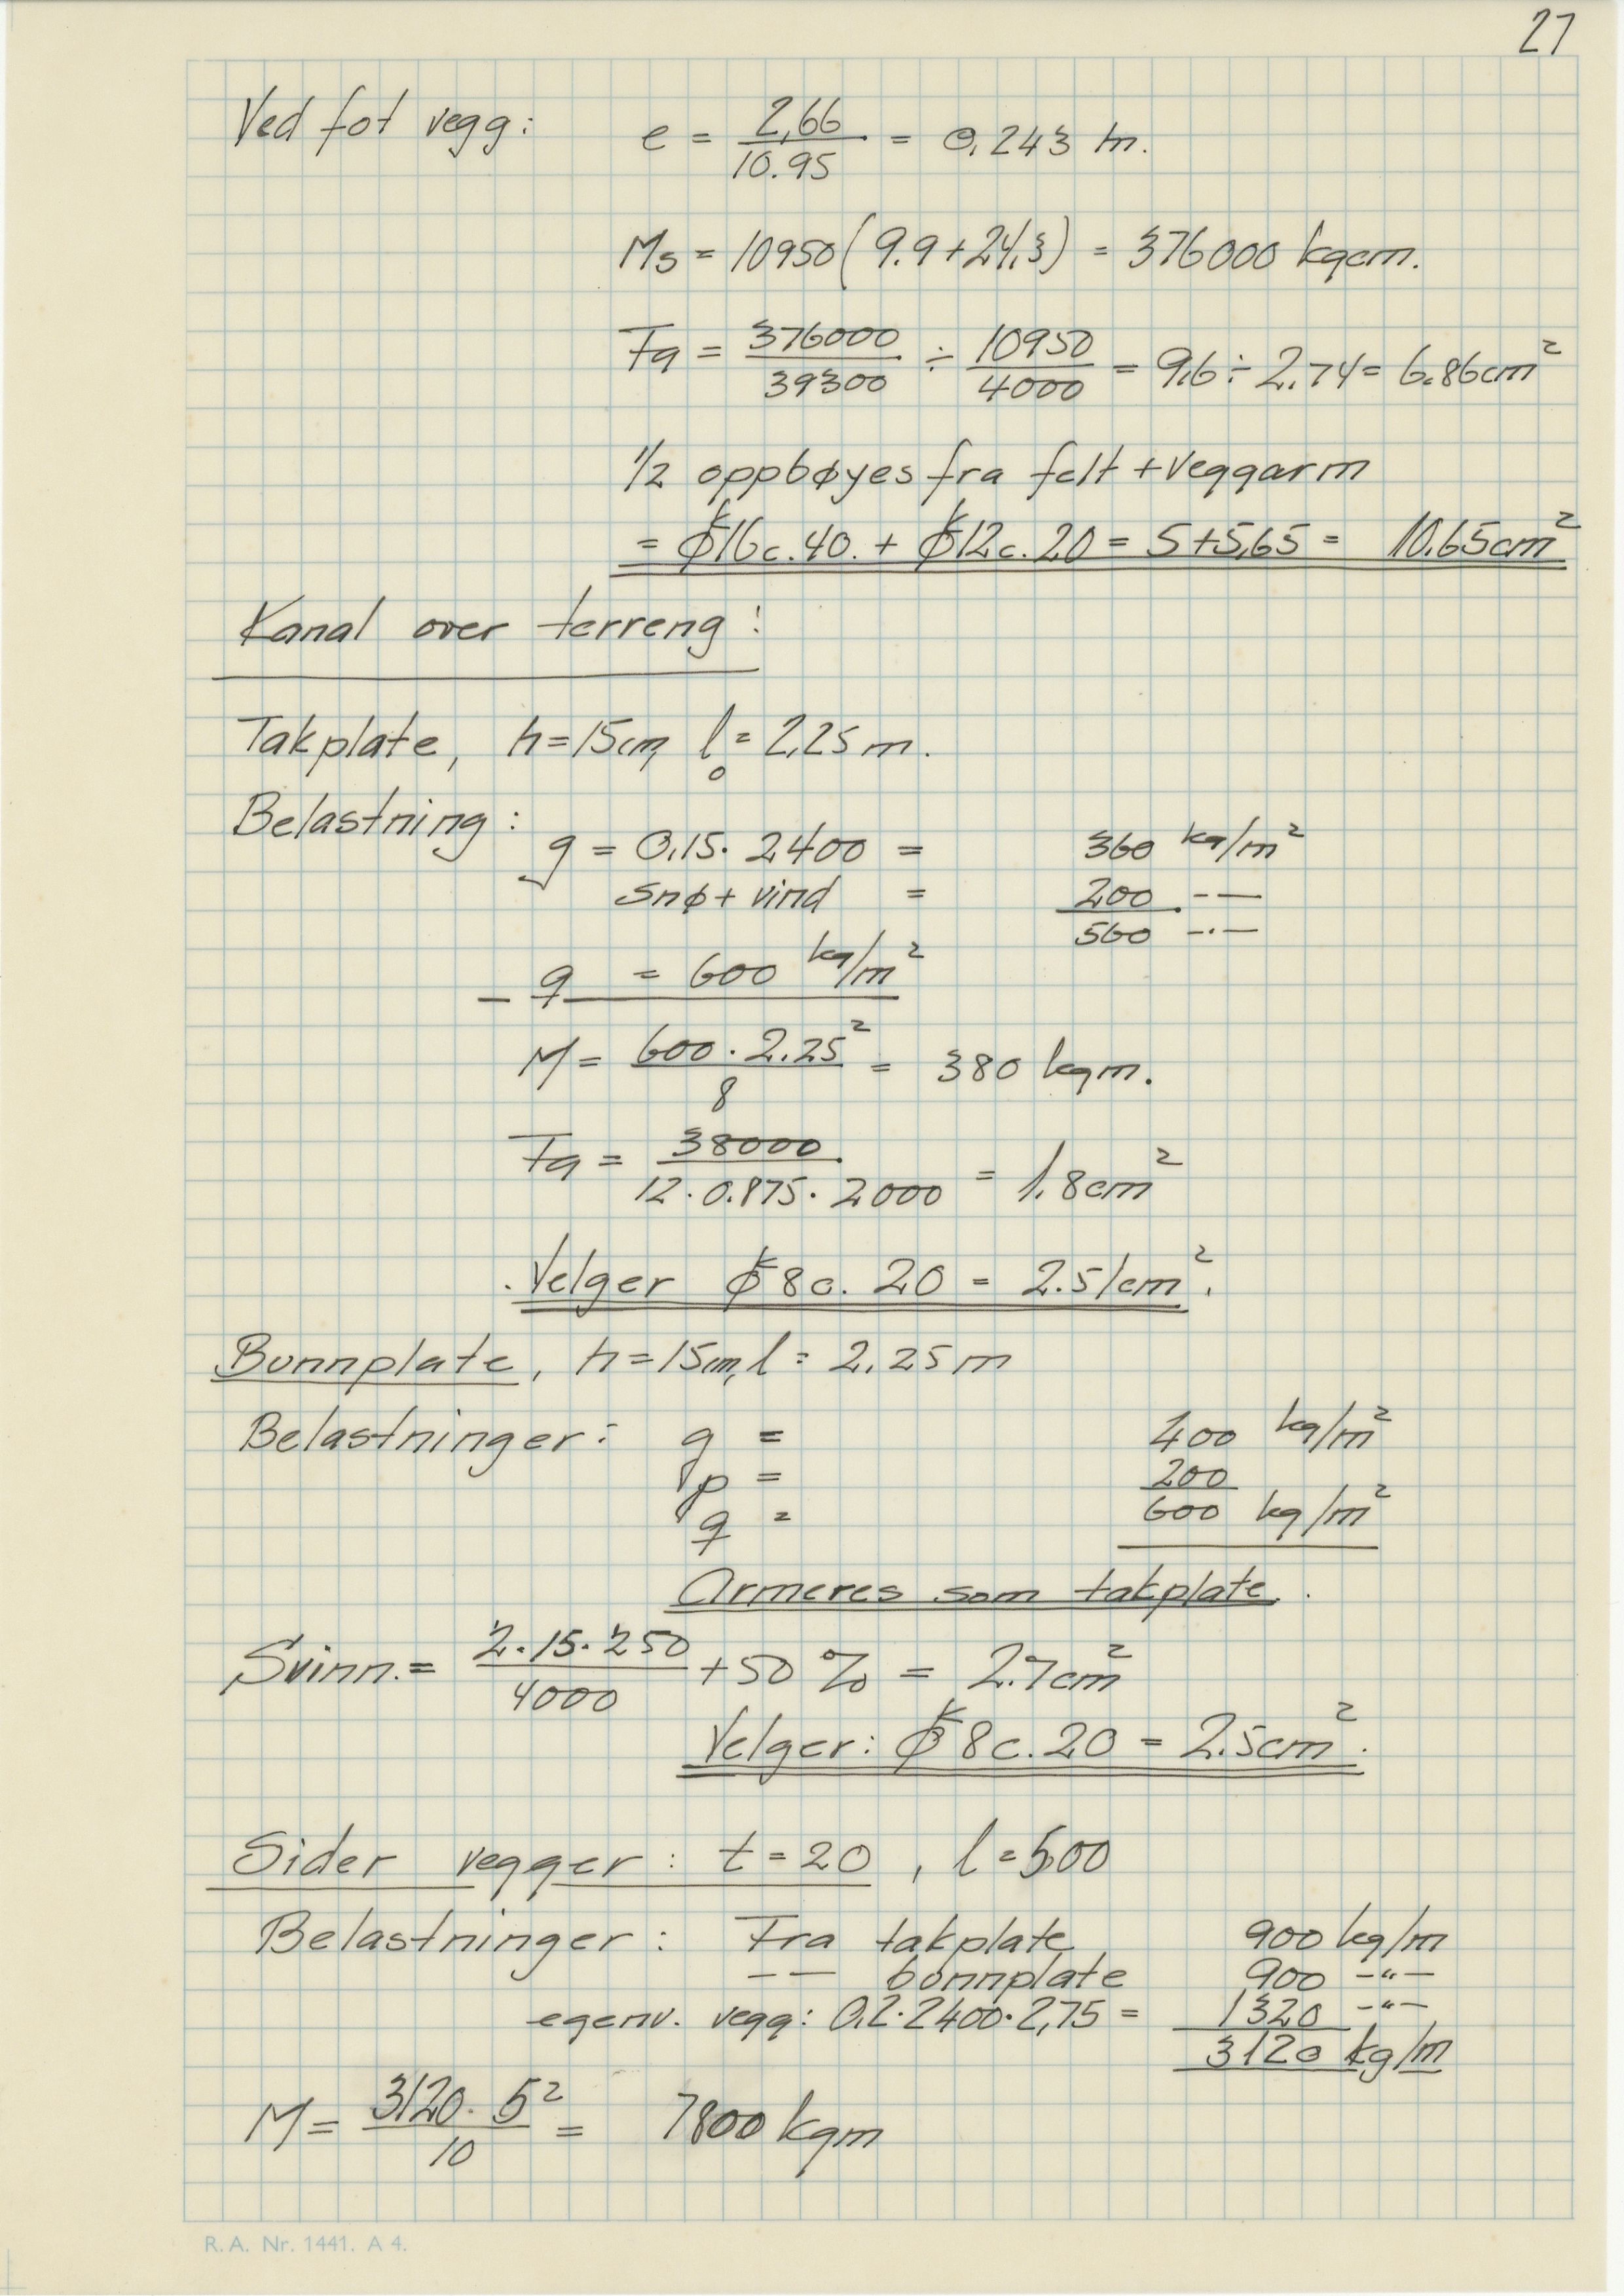 27
Ved fot vegg: e = 2,66 / 10.95 = 0.243 m.
Ms = 10950 (9.9+24,3) = 376000 kgcm.
Fa = 376000 / 39300 ÷ 10950 / 4000 = 9,6 ÷ 2.74 = 6.86cm²
1/2 oppbøyes fra felt + veggarm
= ϕk16 c. 40. + ϕk12 c. 20 = 5+5,65 = 10,65cm²
Kanal over terreng:
Takplate, h=15cm, l₀ = 2,25 m.
Belastning:
g = 0,15 · 2400 = 360 kg/m²
snø + vind = 200 -"-
560 -"-
q = 600 kg/m²
M = 600 · 2.25² / 8 = 380 kgm.
Fa = 38000 / 12 · 0.875 · 2000 = 1,8cm²
Velger ϕk8 c. 20 = 2.51cm².
Bunnplate, h=15cm, l = 2.25 m
Belastninger: g = 400 kg/m²
p = 200
q = 600 kg/m²
Armeres som takplate.
Svinn. = 2 · 15 · 250 / 4000 + 50 % = 2.7cm²
Velger: ϕk8 c. 20 = 2.5cm².
Sider vegger: t = 20, l = 500
Belastninger: Fra takplate 900 kg/m
-"- bunnplate 900 -"-
egenv. vegg: 0,2 · 2400 · 2,75 = 1320 -"-
3120 kg/m
M = 3120 · 5² / 10 = 7800 kgm
R.A. Nr. 1441. A 4.